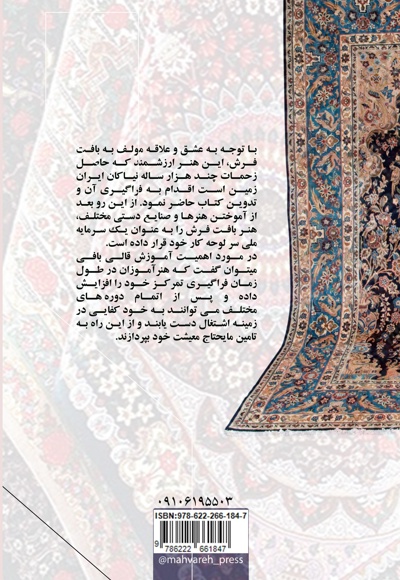 با توجه به عشق و علاقه مولف به بافت
فرش، این هنر ارزشمند که حاصل
زحمات چند هزار ساله نیاکان ایران
زمین است اقدام به فراگیری آن و
تدوین کتاب حاضر نمود. از این رو بعد
از آموختن هنرها و صنایع دستی مختلف،
هنر بافت فرش را به عنوان یک سرمایه
ملی سر لوحه کار خود قرار داده است.
در مورد اهمیت آموزش قالی بافی
میتوان گفت که هنرآموزان در طول
زمان فراگیری تمرکز خود را افزایش
داده و پس از اتمام دوره های
مختلف می توانند به خود کفایی در
زمینه اشتغال دست یابند و از این راه به
تامین مایحتاج معیشت خود بپردازند.
۰۹۱۰۶۱۹۵۵۰۳
ISBN:978-622-266-184-7
9 786222 661847
@mahvareh_press